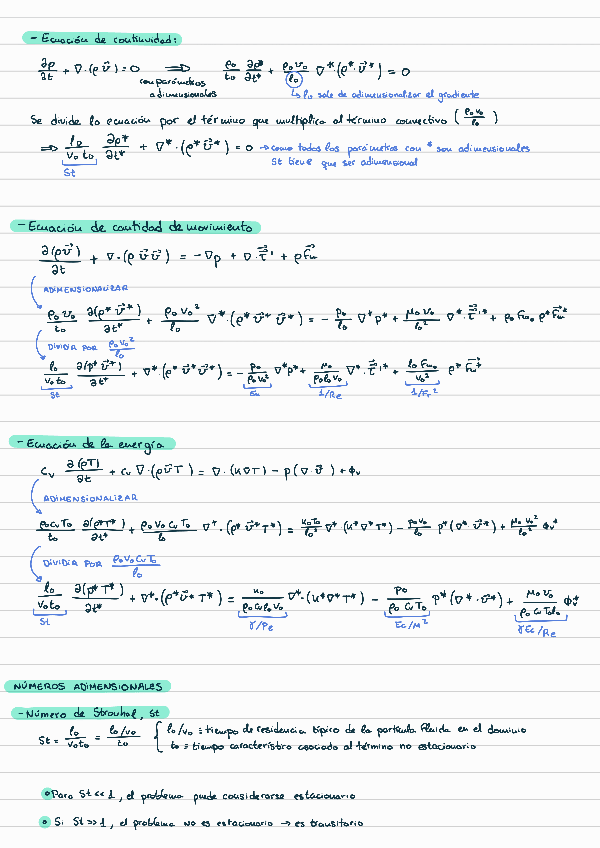 - Ecuación de continuidad:
∂ρ/∂t + ∇·(ρ v⃗) = 0 ⟹ ρ₀/t₀ ∂ρ*/∂t* + ρ₀v₀/l₀ ∇*·(ρ*·v⃗*) = 0
con parámetros
adimensionales
↳ l₀ sale de adimensionalizar el gradiente
Se divide la ecuación por el término que multiplica al término convectivo (ρ₀v₀/l₀)
⟹ l₀/v₀t₀ ∂ρ*/∂t* + ∇*·(ρ* v⃗*) = 0 → como todos los parámetros con * son adimensionales
St
St tiene que ser adimensional
- Ecuación de cantidad de movimiento
∂(ρv⃗)/∂t + ∇·(ρ v⃗ v⃗) = -∇p + ∇·τ⃗' + ρF⃗m
ADIMENSIONALIZAR
ρ₀v₀/t₀ ∂(ρ* v⃗*)/∂t* + ρ₀v₀²/l₀ ∇*·(ρ* v⃗* v⃗*) = - p₀/l₀ ∇*p* + μ₀v₀/l₀² ∇*·τ⃗'* + ρ₀ Fm₀ ρ* F⃗m*
DIVIDIR POR ρ₀v₀²/l₀
l₀/v₀t₀ ∂(ρ* v⃗*)/∂t* + ∇*·(ρ* v⃗* v⃗*) = - p₀/ρ₀v₀² ∇*p* + μ₀/ρ₀l₀v₀ ∇*·τ⃗'* + l₀Fm₀/v₀² ρ* F⃗m*
St Eu 1/Re 1/Fr²
- Ecuación de la energía
cv ∂(ρT)/∂t + cv ∇·(ρv⃗T) = ∇·(κ∇T) - p(∇·v⃗) + ϕv
ADIMENSIONALIZAR
ρ₀cvT₀/t₀ ∂(ρ*T*)/∂t* + ρ₀v₀cvT₀/l₀ ∇*·(ρ* v⃗* T*) = κ₀T₀/l₀² ∇*·(κ*∇*T*) - p₀v₀/l₀ p*(∇*·v⃗*) + μ₀v₀²/l₀² ϕv*
DIVIDIR POR ρ₀v₀cvT₀/l₀
l₀/v₀t₀ ∂(ρ*T*)/∂t* + ∇*·(ρ* v⃗* T*) = κ₀/ρ₀cvl₀v₀ ∇*·(κ*∇*T*) - p₀/ρ₀cvT₀ p*(∇*·v⃗*) + μ₀v₀/ρ₀cvT₀l₀ ϕv*
St γ/Pe Ec/M² γEc/Re
NÚMEROS ADIMENSIONALES
- Número de Strouhal, St
St = l₀/v₀t₀ = l₀/v₀/t₀ { l₀/v₀ ≡ tiempo de residencia típico de la partícula fluida en el dominio
t₀ ≡ tiempo característico asociado al término no estacionario
• Para St << 1, el problema puede considerarse estacionario
• Si St >> 1, el problema no es estacionario → es transitorio